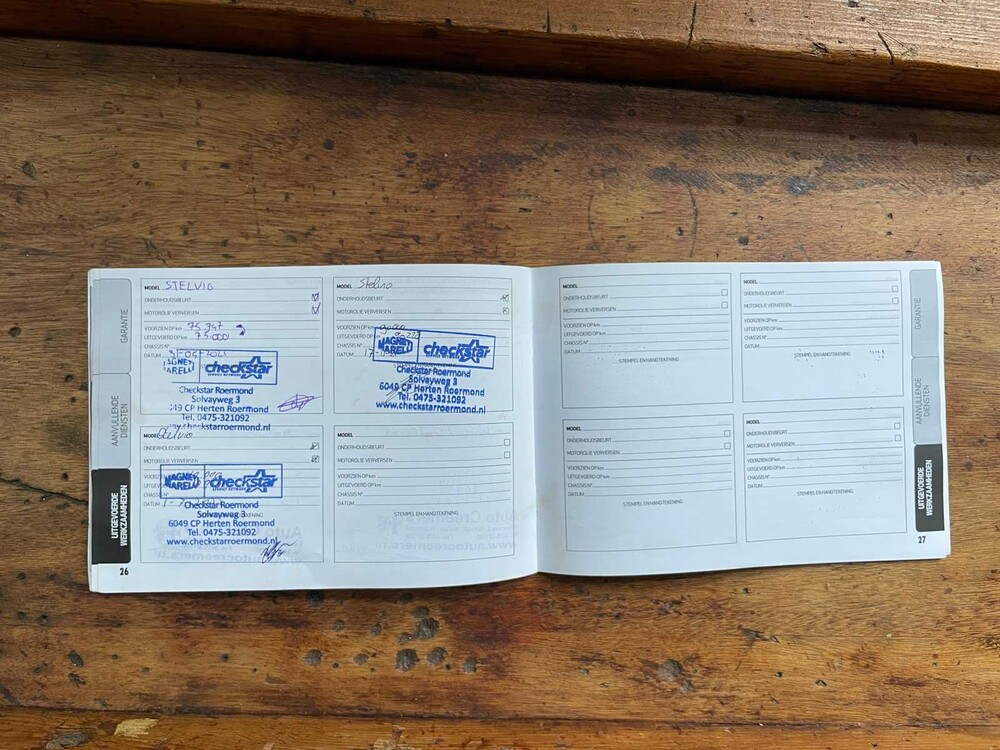 GARANTIE
AANVULLENDE
DIENSTEN
UITGEVOERDE
WERKZAAMHEDEN
26
MODEL STELVIO
ONDERHOUDSBEURT
MOTOROLIE VERVERSEN
VOORZIEN OP km 75.347
UITGEVOERD OP km 75.000
CHASSIS N°
DATUM
checkstar
Checkstar Roermond
Solvayweg 3
CP Herten Roermond
Tel. 0475-321092
MODEL Stelvio
ONDERHOUDSBEURT
MOTOROLIE VERVERSEN
VOORZIEN OP km
UITGEVOERD OP km
CHASSIS N°
DATUM
MAGNETI
MARELLI
checkstar
Checkstar Roermond
Solvayweg 3
6049 CP Herten Roermond
Tel. 0475-321092
www.checkstarroermond.nl
MODEL Stelvio
ONDERHOUDSBEURT
MOTOROLIE VERVERSEN
DATUM
MAGNETI
MARELLI
checkstar
SERVICE NETWORK
Checkstar Roermond
Solvayweg 3
6049 CP Herten Roermond
Tel. 0475-321092
www.checkstarroermond.nl
MODEL
ONDERHOUDSBEURT
MOTOROLIE VERVERSEN
VOORZIEN OP km
UITGEVOERD OP km
CHASSIS N°
DATUM
STEMPEL EN HANDTEKENING
MODEL
ONDERHOUDSBEURT
MOTOROLIE VERVERSEN
VOORZIEN OP km
UITGEVOERD OP km
CHASSIS N°
DATUM
STEMPEL EN HANDTEKENING
MODEL
ONDERHOUDSBEURT
MOTOROLIE VERVERSEN
VOORZIEN OP km
UITGEVOERD OP km
CHASSIS N°
DATUM
STEMPEL EN HANDTEKENING
MODEL
ONDERHOUDSBEURT
MOTOROLIE VERVERSEN
VOORZIEN OP km
UITGEVOERD OP km
CHASSIS N°
DATUM
STEMPEL EN HANDTEKENING
MODEL
ONDERHOUDSBEURT
MOTOROLIE VERVERSEN
VOORZIEN OP km
UITGEVOERD OP km
CHASSIS N°
DATUM
STEMPEL EN HANDTEKENING
GARANTIE
AANVULLENDE
DIENSTEN
UITGEVOERDE
WERKZAAMHEDEN
27